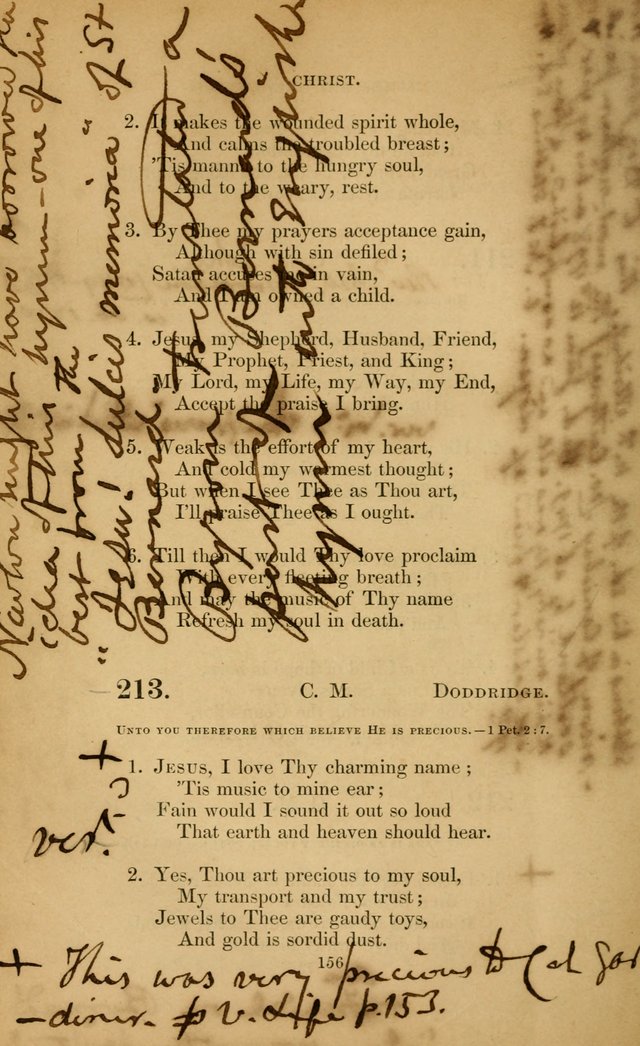 CHRIST.
2. It makes the wounded spirit whole,
And calms the troubled breast;
'Tis manna to the hungry soul,
And to the weary, rest.
3. By Thee my prayers acceptance gain,
Although with sin defiled;
Satan accuses me in vain,
And I am owned a child.
4. Jesus, my Shepherd, Husband, Friend,
My Prophet, Priest, and King;
My Lord, my Life, my Way, my End,
Accept the praise I bring.
5. Weak is the effort of my heart,
And cold my warmest thought;
But when I see Thee as Thou art,
I'll praise Thee as I ought.
6. Till then I would Thy love proclaim
With every fleeting breath;
And may the music of Thy name
Refresh my soul in death.
Newton might have borrowed the
idea of this hymn - one of his
best from the
"Jesu! dulcis memoria" of St
Bernard - translated a
Bernard's
with English
hymn
213. C. M. DODDRIDGE.
UNTO YOU THEREFORE WHICH BELIEVE HE IS PRECIOUS. — 1 Pet. 2:7.
+
1. JESUS, I love Thy charming name;
'Tis music to mine ear;
Fain would I sound it out so loud
That earth and heaven should hear.
ver.
2. Yes, Thou art precious to my soul,
My transport and my trust;
Jewels to Thee are gaudy toys,
And gold is sordid dust.
156
+ This was very precious to Col Gar
-diner. V. Life p. 153.